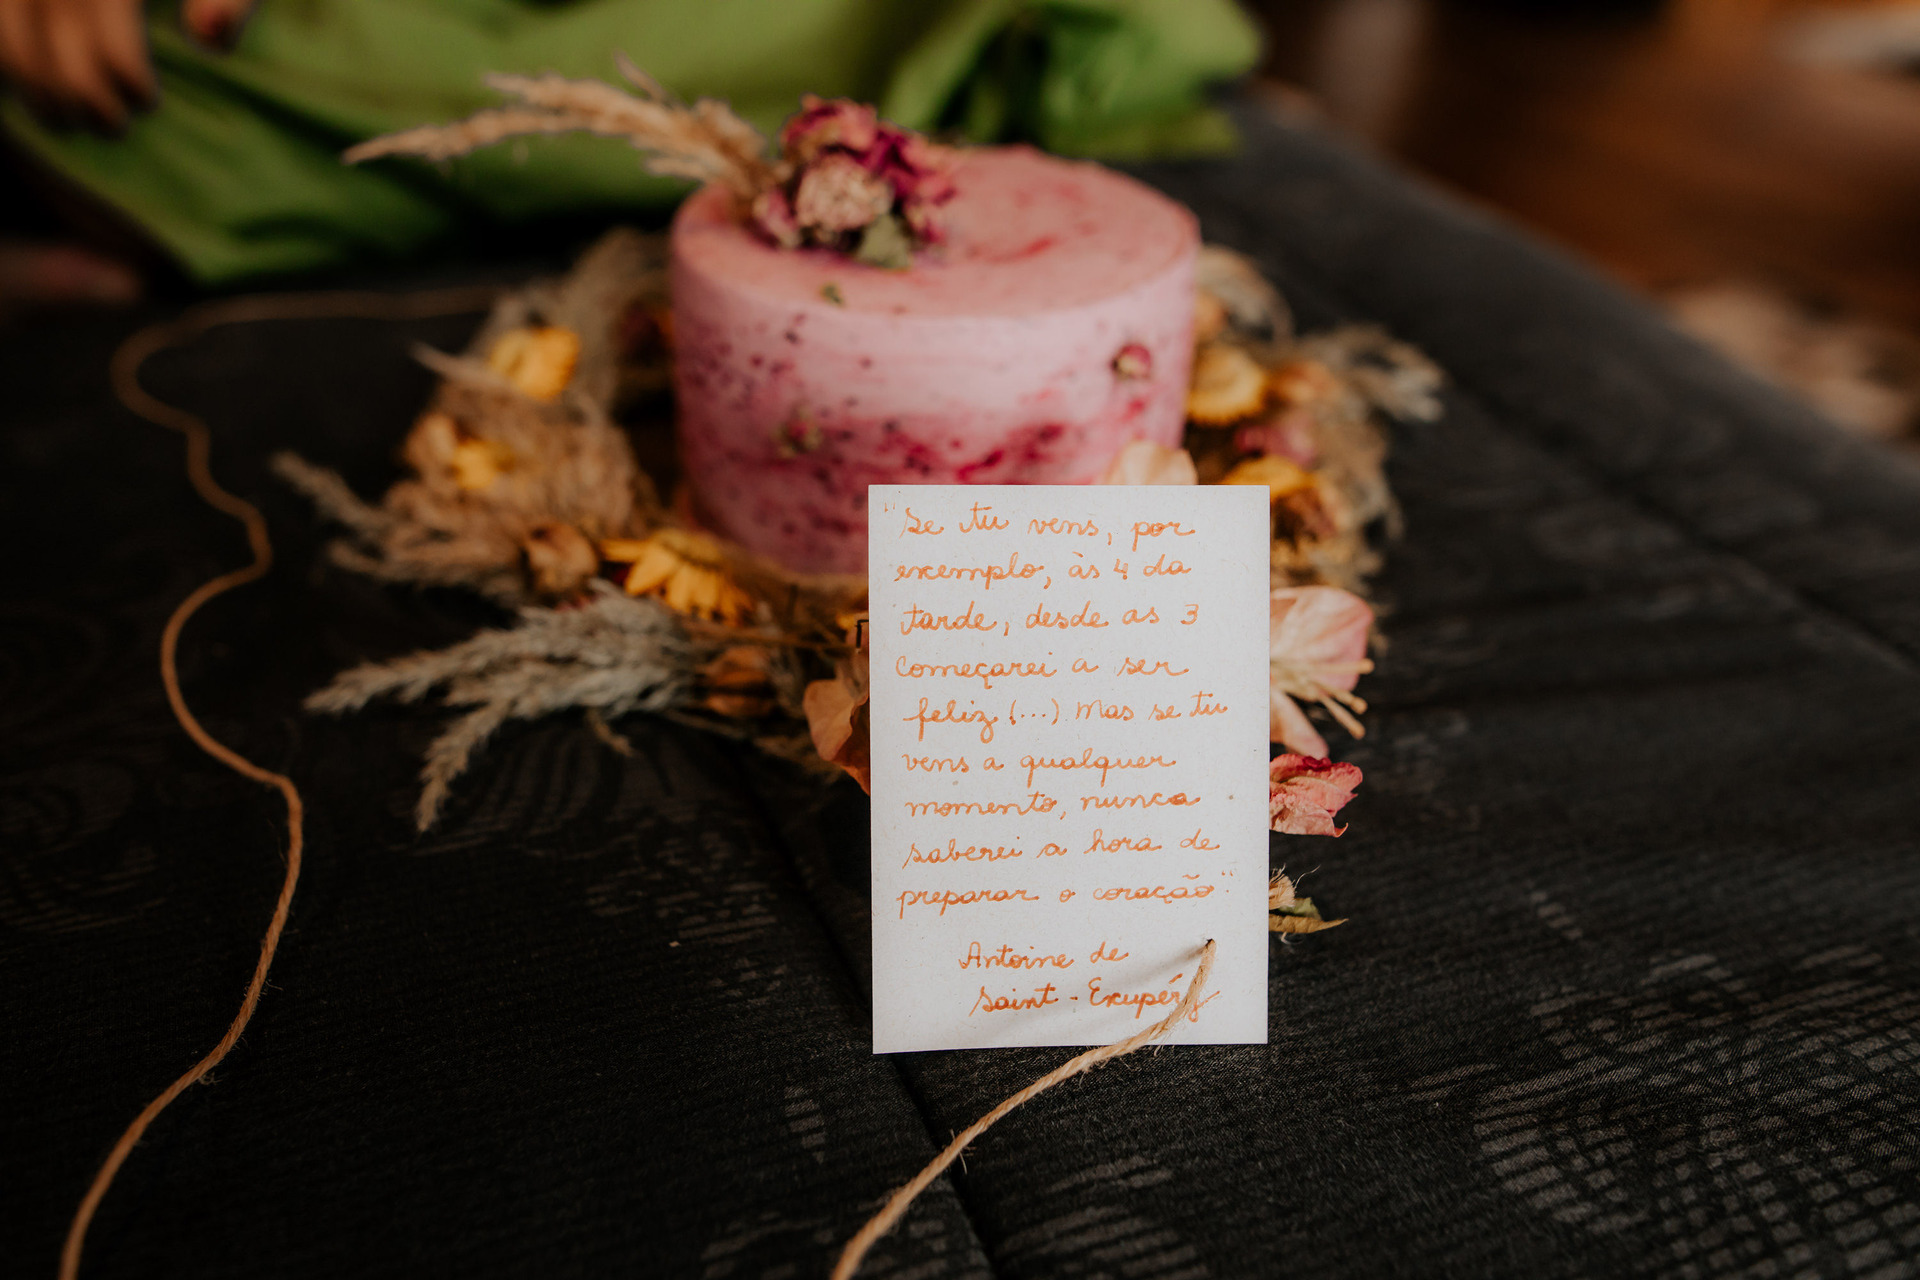 "Se tu vens, por
exemplo, às 4 da
tarde, desde as 3
começarei a ser
feliz (...) Mas se tu
vens a qualquer
momento, nunca
saberei a hora de
preparar o coração"
Antoine de
Saint-Exupéry